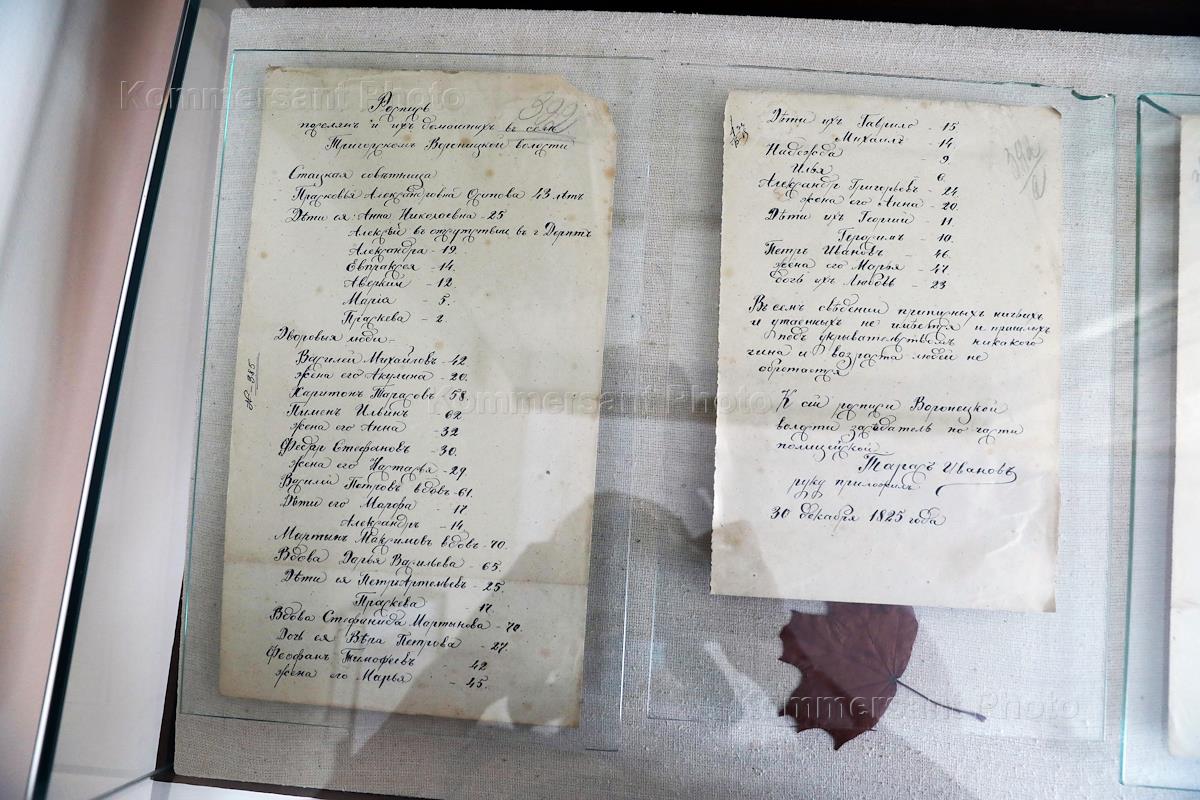 Kommersant Photo
Роспись
322
поселян и ихъ домашнихъ въ селе
Тригорскомъ Воронецкой волости
Стацкая совѣтница
Прасковья Александровна Осипова 43 лѣтъ
Дѣти ея: Анна Николаевна - 25
Алексѣй въ отсутствии въ г. Дерптъ
Александра - 19.
Евпраксея - 14.
Аверкий - 12
Марiа - 5.
Праскева - 2.
Дворовыя люди -
Василий Михайловъ - 42
жена его Акулина - 20.
Харитонъ Тарасовъ - 58.
Пименъ Ильинъ 62
жена его Анна - 32
Федаръ Стефановъ - 30.
жена его Настасья - 29
Василий Петровъ вдовъ - 61.
Дѣти его Марфа - 17
Александръ - 14.
Мартынъ Максимовъ вдовъ - 70.
Вдова Дарья Васильева - 65.
Дѣти ея Петръ Артемьевъ - 25.
Праскева 17.
Вдова Стефанида Мартынова - 70.
Дочь ея Вѣра Петрова - 27.
Феофанъ Тимофеевъ - 42
жена его Марья - 45.
№ 385
Дѣти ихъ Гаврило - 15
Михаилъ - 14.
Надежда - 9.
Илья 6.
Александръ Григорьевъ - 24
жена его Анна - 20.
Дѣти ихъ Георгий - 11.
Герасимъ - 10.
Петръ Ивановъ - 46.
жена его Марья - 47.
дочь ихъ Любовь - 23
Въ семъ свѣдении приписныхъ ничьихъ
и утаенныхъ не имѣется и пришлыхъ
подъ укрывательствомъ никакого
чина и возраста людей не
обретается
К сей росписи Воронецкой
волости засѣдатель по части
полицейской
Тарасъ Ивановъ
руку приложилъ
30 декабря 1825 года
Kommersant Photo
Kommersant Photo